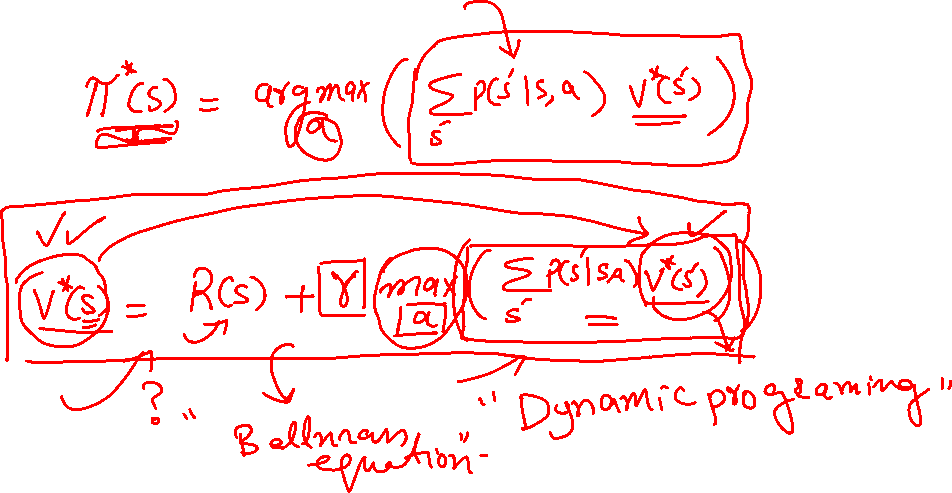 π*(s) = argmax a ( Σ s' P(s'|s,a) V*(s') )
V*(s) = R(s) + γ max a ( Σ s' P(s'|s,a) V*(s') )
?
"Bellman equation"
"Dynamic programing"